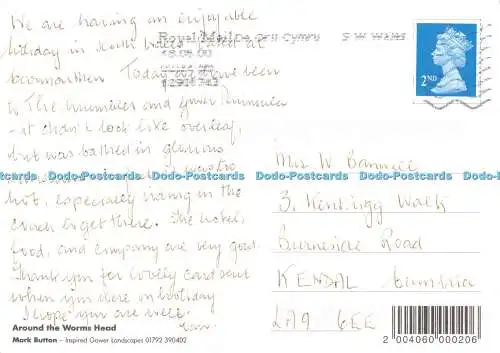 We are having an enjoyable
holiday in south Wales based at
Carmarthen. Today we have been
to The Mumbles and Gower Peninsula
- it didn't look like overleaf,
but was bathed in glorious
hot, especially in the
coach to get there. The hotel,
food, and company are very good.
Thank you for lovely card sent
when you were on holiday
I hope you are well.
Around the Worms Head
Mark Button – Inspired Gower Landscapes 01792 390402
Royal Mail
S W Wales
2ND
Mrs W
3, Kentrigg Walk
Burneside Road
KENDAL Cumbria
LA9 6EE
2 004060 000206
Dodo-Postcards Dodo-Postcards Dodo-Postcards Dodo-Postcards